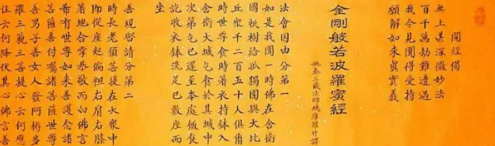 開經偈
無上甚深微妙法
百千萬劫難遭遇
我今見聞得受持
願解如來真實義
金剛般若波羅蜜經
姚秦三藏法師鳩摩羅什譯
法會因由分第一
如是我聞一時佛在舍衛
國祇樹給孤獨園與大比
丘眾千二百五十人俱爾
時世尊食時著衣持鉢入
舍衛大城乞食於其城中
次第乞已還至本處飯食
訖收衣鉢洗足已敷座而
坐
善現啟請分第二
時長老須菩提在大眾中
即從座起偏袒右肩右膝
著地合掌恭敬而白佛言
希有世尊如來善護念諸
菩薩善付囑諸菩薩世尊
善男子善女人發阿耨多
羅三藐三菩提心云何應
住云何降伏其心佛言善